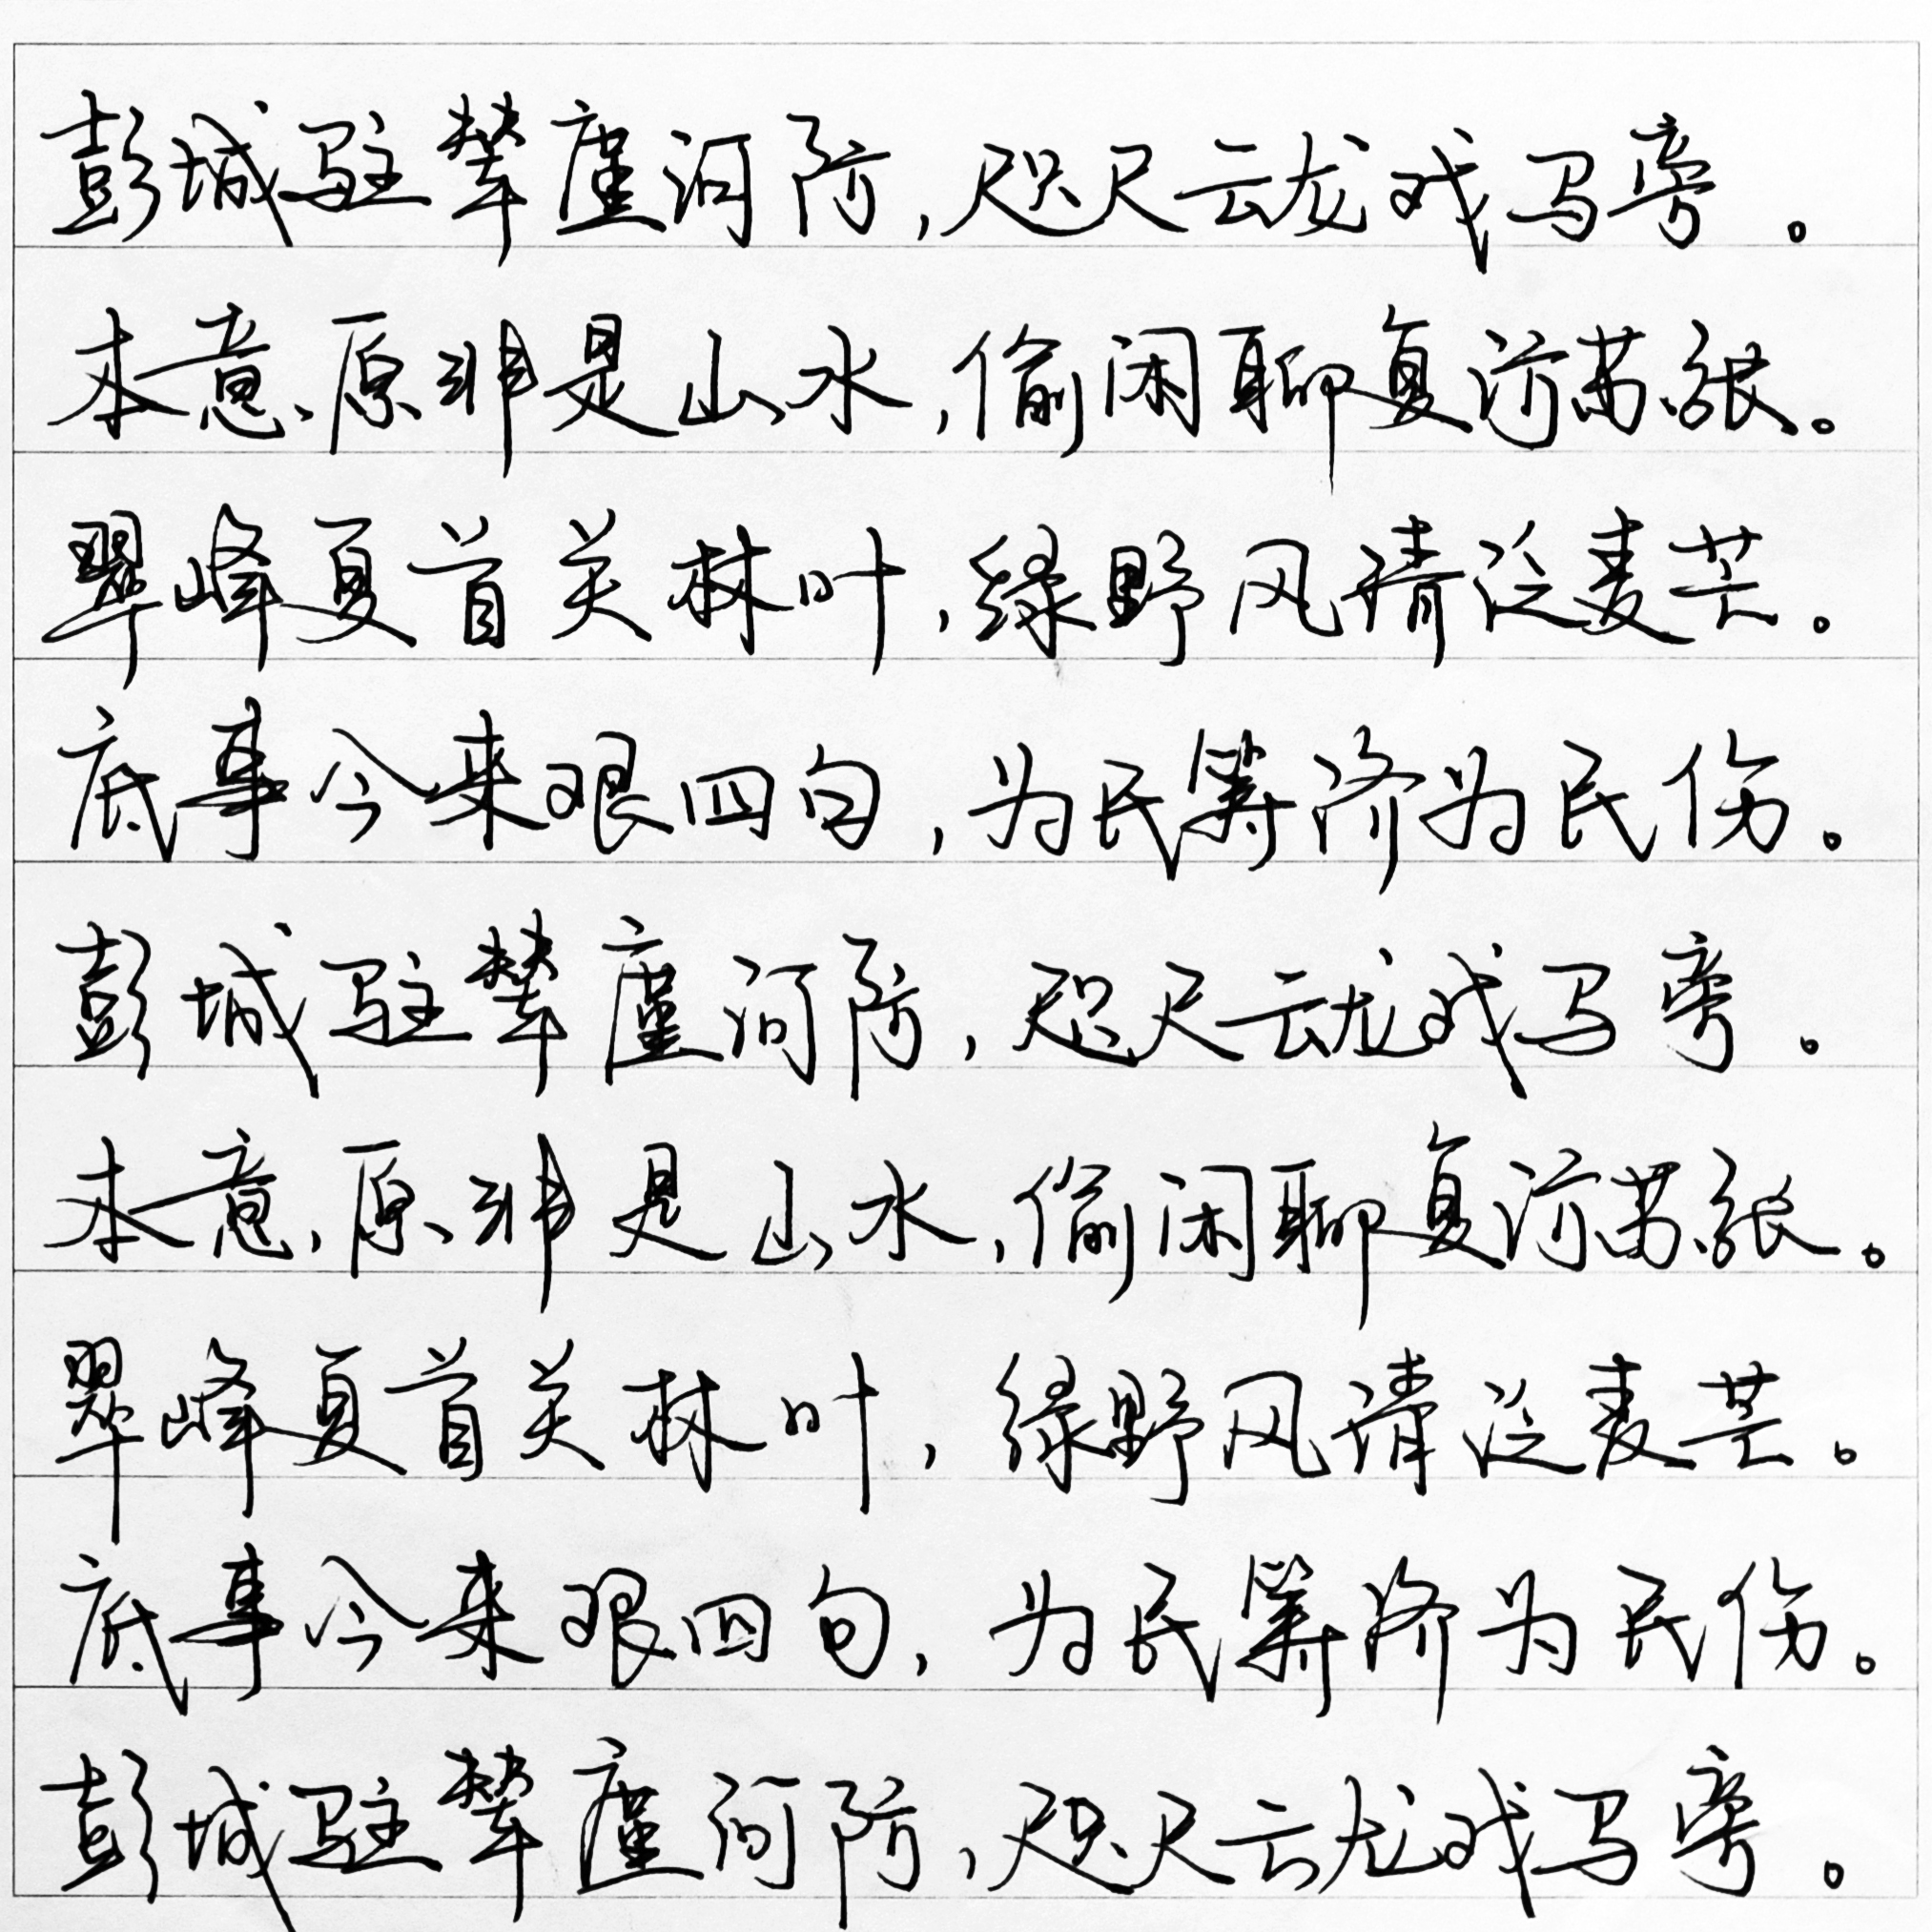 彭城驻辇廑河防，咫尺云龙戏马旁。
本意原非是山水，偷闲聊复访苏张。
翠峰夏首关林叶，绿野风清泛麦芒。
底事今来艰四句，为民筹济为民伤。
彭城驻辇廑河防，咫尺云龙戏马旁。
本意原非是山水，偷闲聊复访苏张。
翠峰夏首关林叶，绿野风清泛麦芒。
底事今来艰四句，为民筹济为民伤。
彭城驻辇廑河防，咫尺云龙戏马旁。